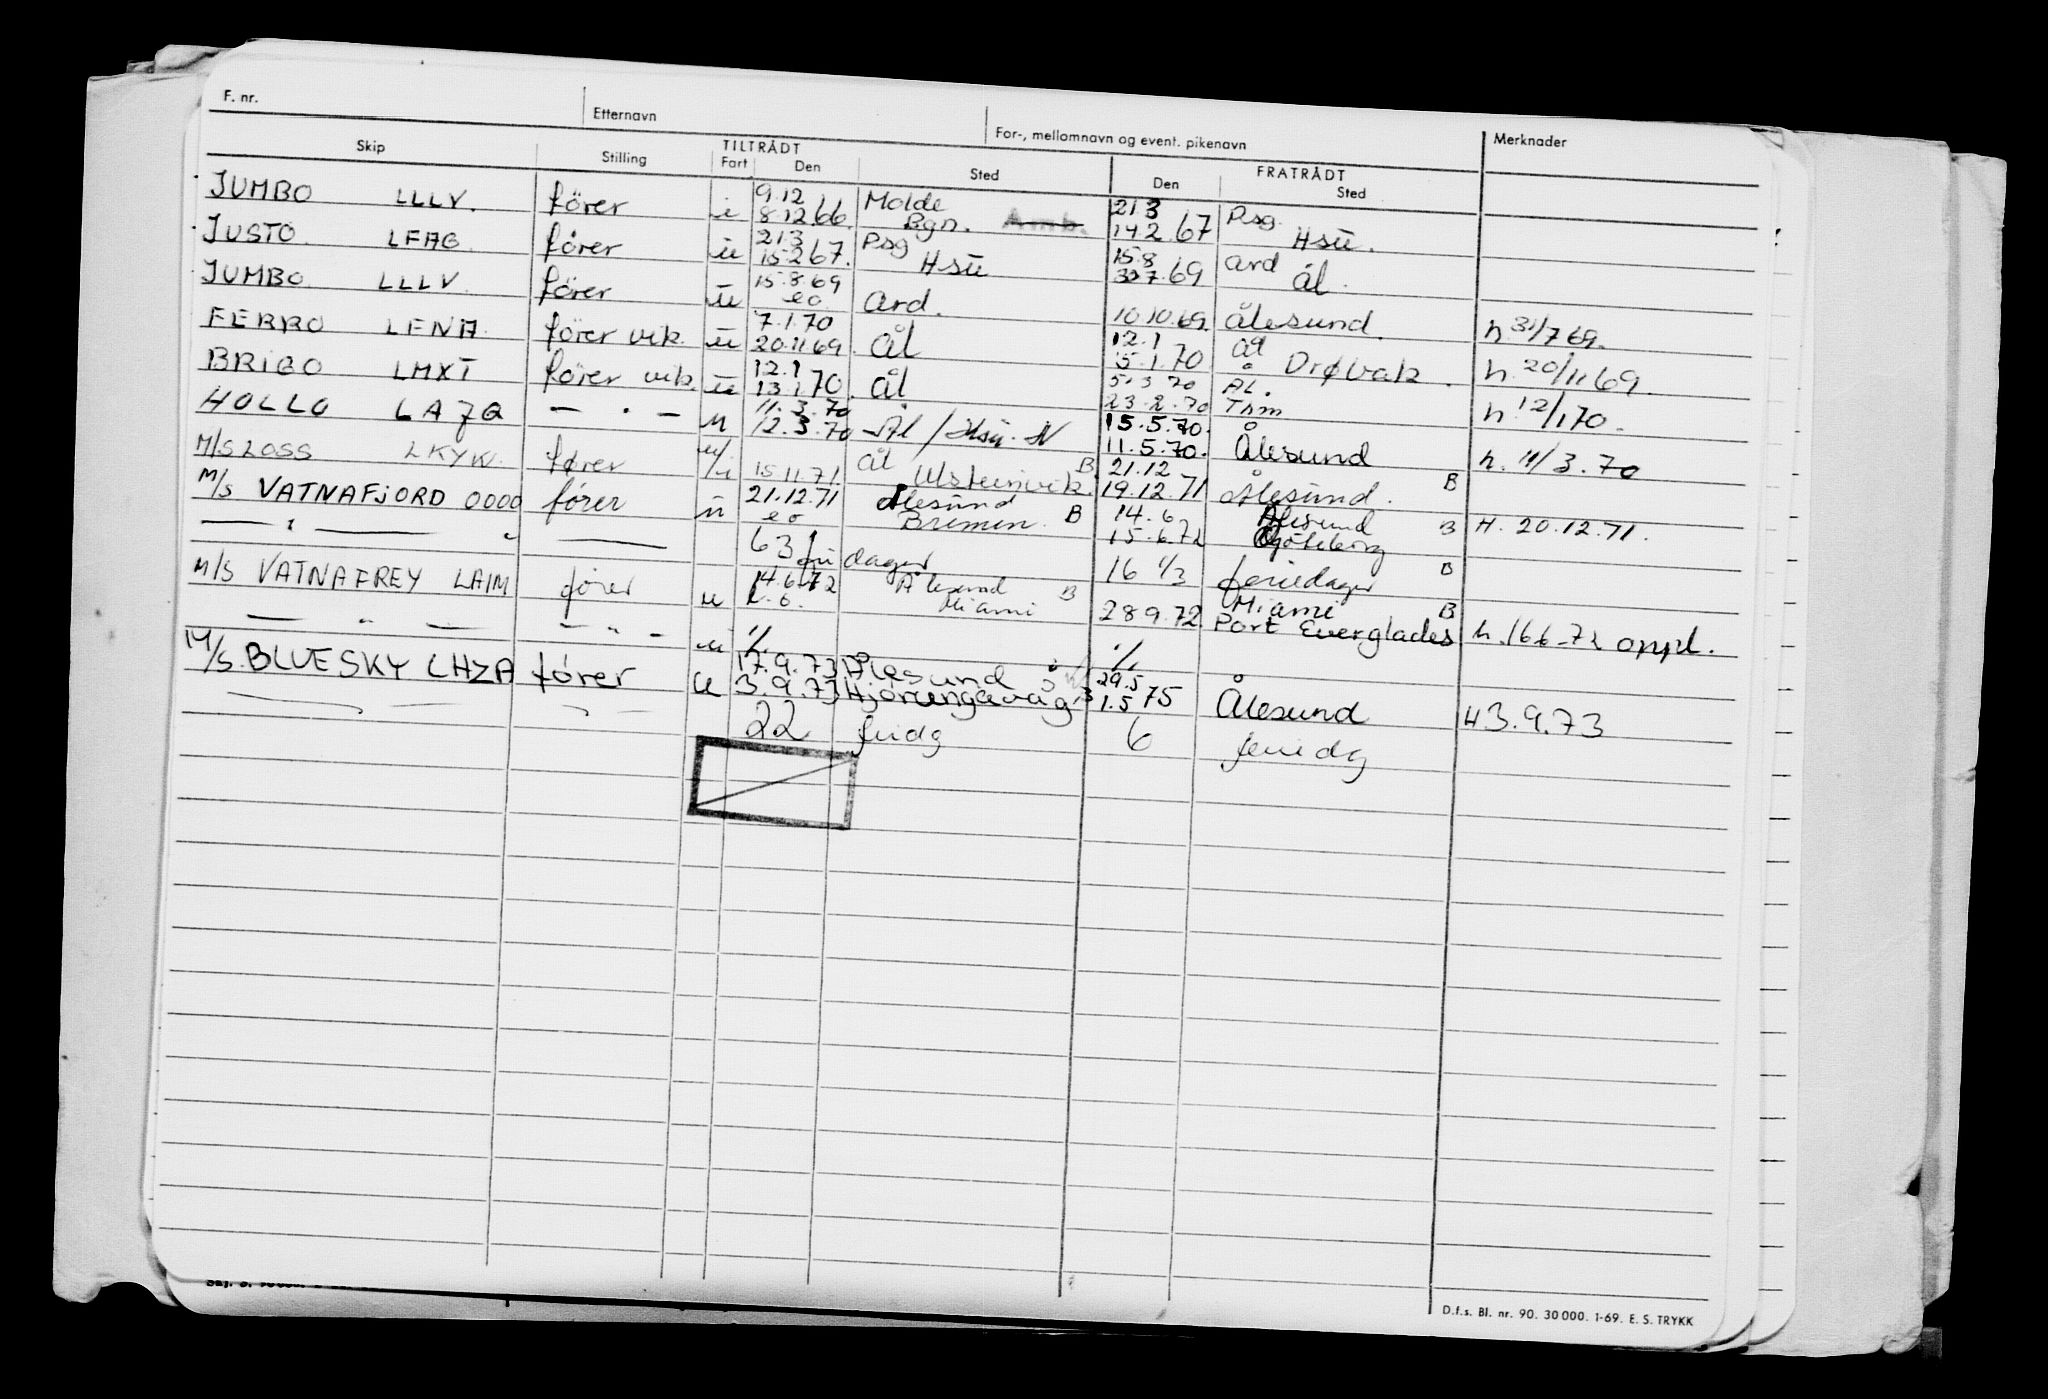 F. nr. Etternavn For-, mellomnavn og event. pikenavn Merknader
Skip Stilling TILTRÅDT FRATRÅDT
Fart Den Sted Den Sted
JUMBO LLLV. fører i 9.12 8.12 66. Molde Bgn. Amb. 21.3 14.2.67 Psg. Hsu.
JUSTO. LFAG fører u 21.3 15.2 67. Psg Hsu 15.8 30.7.69 ard ål.
JUMBO LLLV. fører u 15.8.69 eo ard. 10.10.69. Ålesund. h 31/7 69.
FERRO LFNA. fører vik. u 7.1.70 20.11.69. ål 12.1 15.1.70 ål Drøbak. h. 20/11 69.
BRIBO LMXT fører vik. u 12.1 13.1.70. ål 5.3.70 23.2.70 ÅL. Thm h 12/1 70.
HOLLO LAJQ — . — u 11.3.70 12.3.70 Ål / Hsu. N 15.5.70. 11.5.70. Ålesund h. 11/3.70
M/S LOSS LKYW. fører 15.11.71 ål Ulsteinvik. B 21.12 19.12.71 Ålesund. B
M/S VATNAFJORD OOOO fører u 21.12.71 eo Ålesund Bremen. B 14.6 15.6.72 Ålesund Göteborg B H. 20.12.71.
— " — — 63 fri dager 16 1/3 feriedager B
M/S VATNAFREY LAIM fører u 14.6.72 Ålesund Miami B 28.9.72. Miami Port Everglades B h. 16.6.72 oppl.
— " — — " — u % %
M/S. BLUESKY LHZA fører u 17.9.73 3.9.73 Ålesund Hjørungavåg 29.5 1.5 75 Ålesund H 3.9.73
22 fridg 6 feriedg
D.f.s. Bl. nr. 90. 30 000. 1-69. E. S. TRYKK